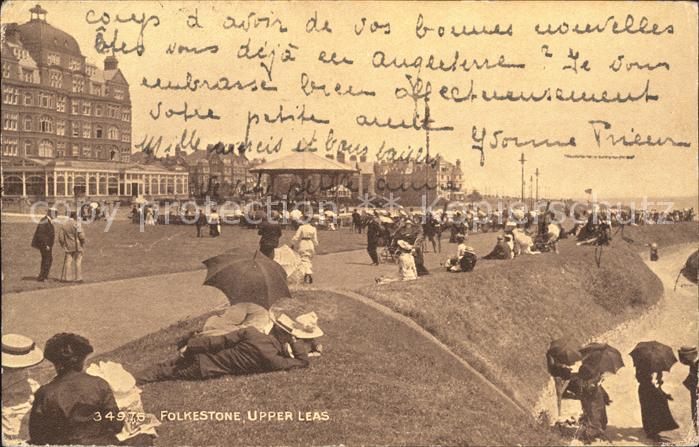 coups d'avoir de vos bonnes nouvelles
êtes vous déjà en angleterre ? Je vous
embrasse bien affectueusement
votre petite amie Yvonne Prieur
Mille mercis et bons baisers
34976 FOLKESTONE, UPPER LEAS
copy protected & Kopierschutz